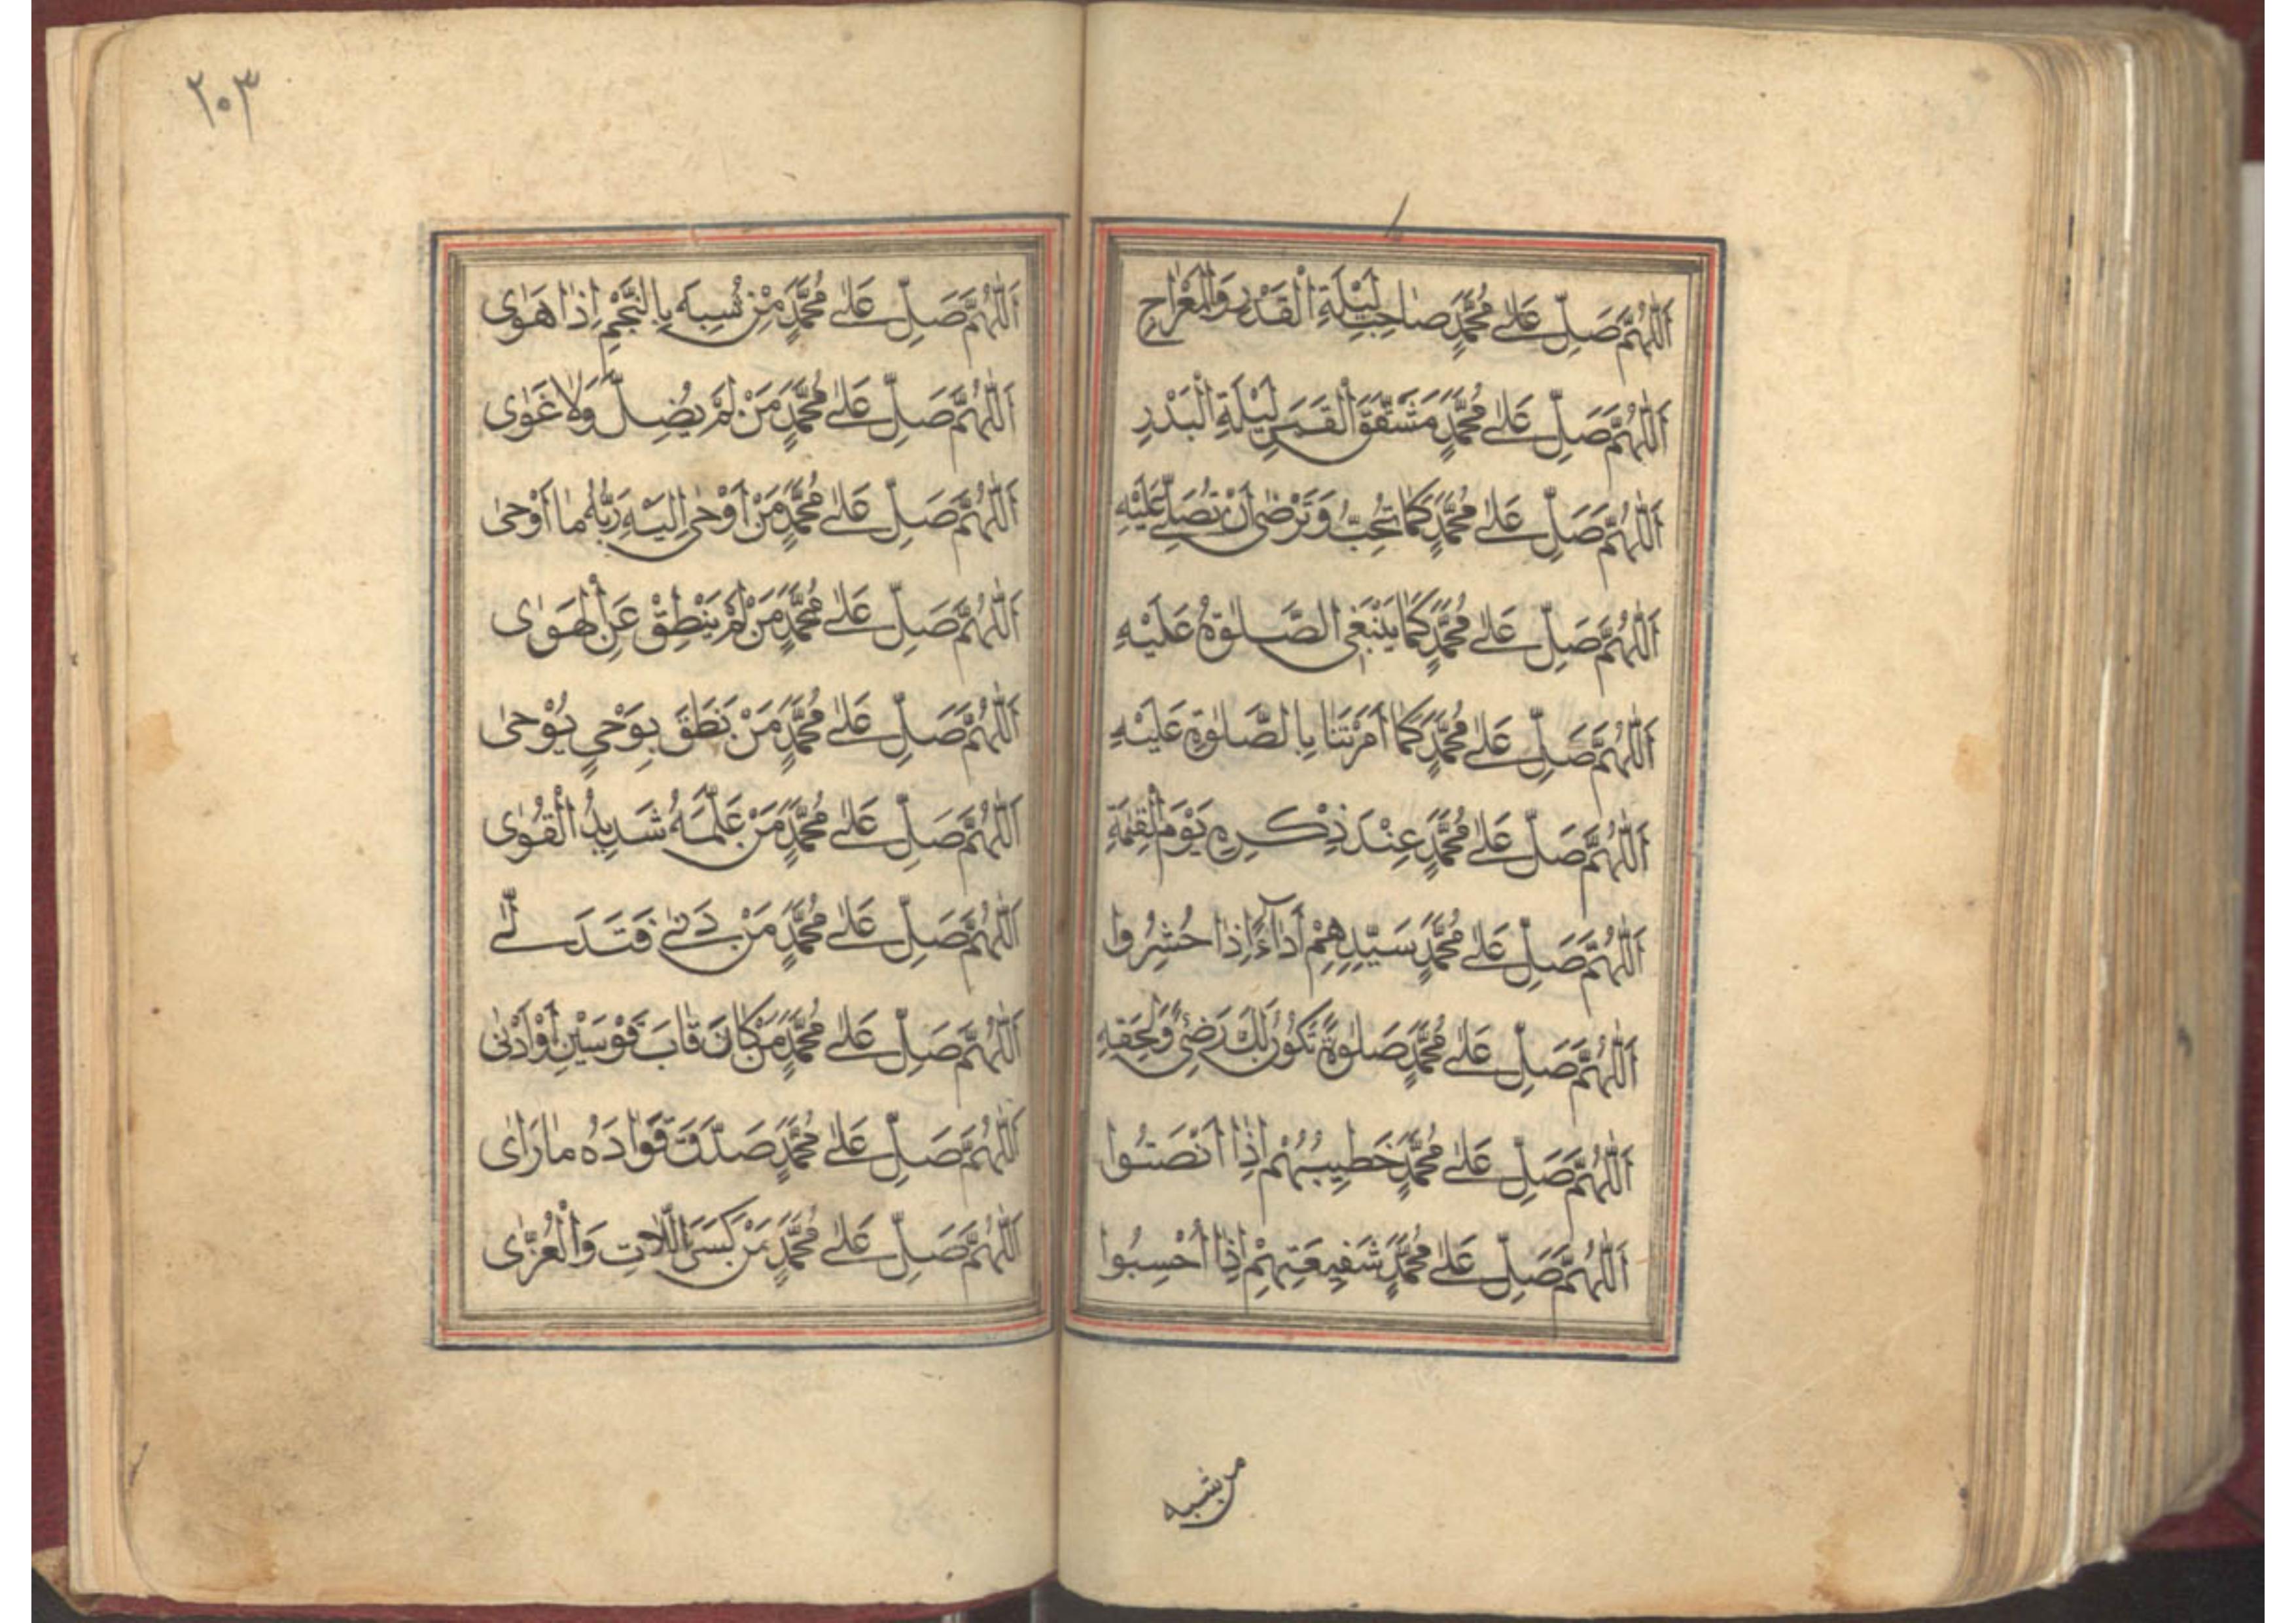 اَللّٰهُمَّ صَلِّ عَلٰى مُحَمَّدٍ صَاحِبِ لَيْلَةِ الْقَدْرِ وَالْمِعْرَاجِ
اَللّٰهُمَّ صَلِّ عَلٰى مُحَمَّدٍ مَشَقَّقَ الْقَمَرِ لَيْلَةِ الْبَدْرِ
اَللّٰهُمَّ صَلِّ عَلٰى مُحَمَّدٍ كَمَا تُحِبُّ وَتَرْضٰى اَنْ تُصَلِّىَ عَلَيْهِ
اَللّٰهُمَّ صَلِّ عَلٰى مُحَمَّدٍ كَمَا يَنْبَغِى الصَّلٰوةُ عَلَيْهِ
اَللّٰهُمَّ صَلِّ عَلٰى مُحَمَّدٍ كَمَا اَمَرْتَنَا بِالصَّلٰوةِ عَلَيْهِ
اَللّٰهُمَّ صَلِّ عَلٰى مُحَمَّدٍ عِنْدَ ذِكْرِهِ يَوْمَ الْقِيٰمَةِ
اَللّٰهُمَّ صَلِّ عَلٰى مُحَمَّدٍ سَيِّدِهِمْ اِذَا حُشِرُوا
اَللّٰهُمَّ صَلِّ عَلٰى مُحَمَّدٍ صَلٰوةً تَكُوْنُ لَكَ رَضِىً وَلِحَقِّهِ
اَللّٰهُمَّ صَلِّ عَلٰى مُحَمَّدٍ خَطِيبُهُمْ اِذَا اَنْصَتُوا
اَللّٰهُمَّ صَلِّ عَلٰى مُحَمَّدٍ شَفِيعَتِهِمْ اِذَا اُحْسِبُوا
من شبه
٢٠٣
اَللّٰهُمَّ صَلِّ عَلٰى مُحَمَّدٍ مِنْ نُسِبَه بِالنَّجْمِ اِذَا هَوٰى
اَللّٰهُمَّ صَلِّ عَلٰى مُحَمَّدٍ مَنْ لَمْ يُضِلَّ وَلَا غَوٰى
اَللّٰهُمَّ صَلِّ عَلٰى مُحَمَّدٍ مَنْ اَوْحٰى اِلَيْهِ رَبُّهُ مَا اَوْحٰى
اَللّٰهُمَّ صَلِّ عَلٰى مُحَمَّدٍ مَنْ لَمْ يَنْطِقْ عَنِ الْهَوٰى
اَللّٰهُمَّ صَلِّ عَلٰى مُحَمَّدٍ مَنْ نَطَقَ بِوَحْىٍ يُوْحٰى
اَللّٰهُمَّ صَلِّ عَلٰى مُحَمَّدٍ مَنْ عَلَّمَهُ شَدِيدُ الْقُوٰى
اَللّٰهُمَّ صَلِّ عَلٰى مُحَمَّدٍ مَنْ دَنٰى فَتَدَلّٰى
اَللّٰهُمَّ صَلِّ عَلٰى مُحَمَّدٍ مَنْ كَانَ قَابَ قَوْسَيْنِ اَوْ اَدْنٰى
اَللّٰهُمَّ صَلِّ عَلٰى مُحَمَّدٍ صَدَّقَ فَوَادَهُ مَا رَاٰى
اَللّٰهُمَّ صَلِّ عَلٰى مُحَمَّدٍ مَنْ كَسَرَ اللَّاتِ وَالْعُزّٰى